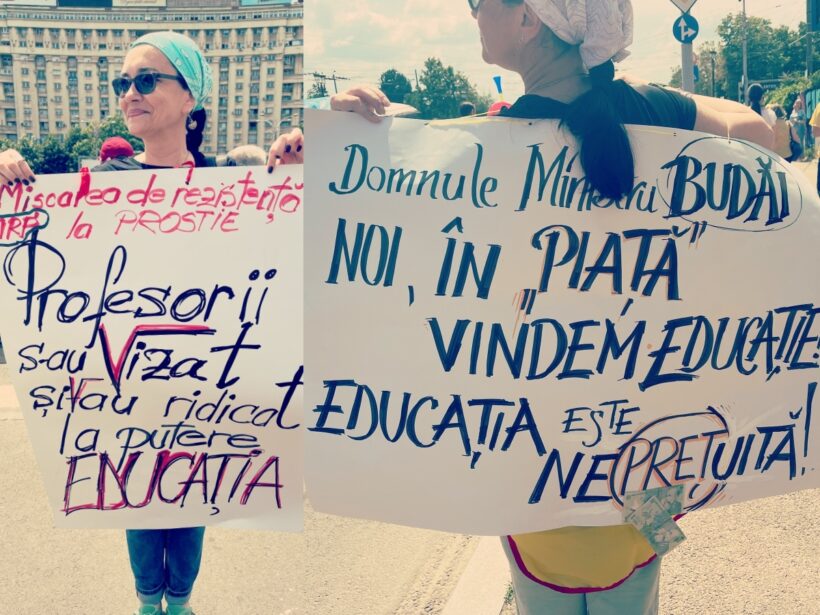 Mișcarea de rezistență
la PROSTIE
Profesorii
s-au Vizat
și v-au ridicat
la putere
EDUCAȚIA
Domnule Ministru BUDĂI
NOI, ÎN „PIAȚĂ”
VINDEM EDUCAȚIE!
EDUCAȚIA ESTE
NEPREȚUITĂ!